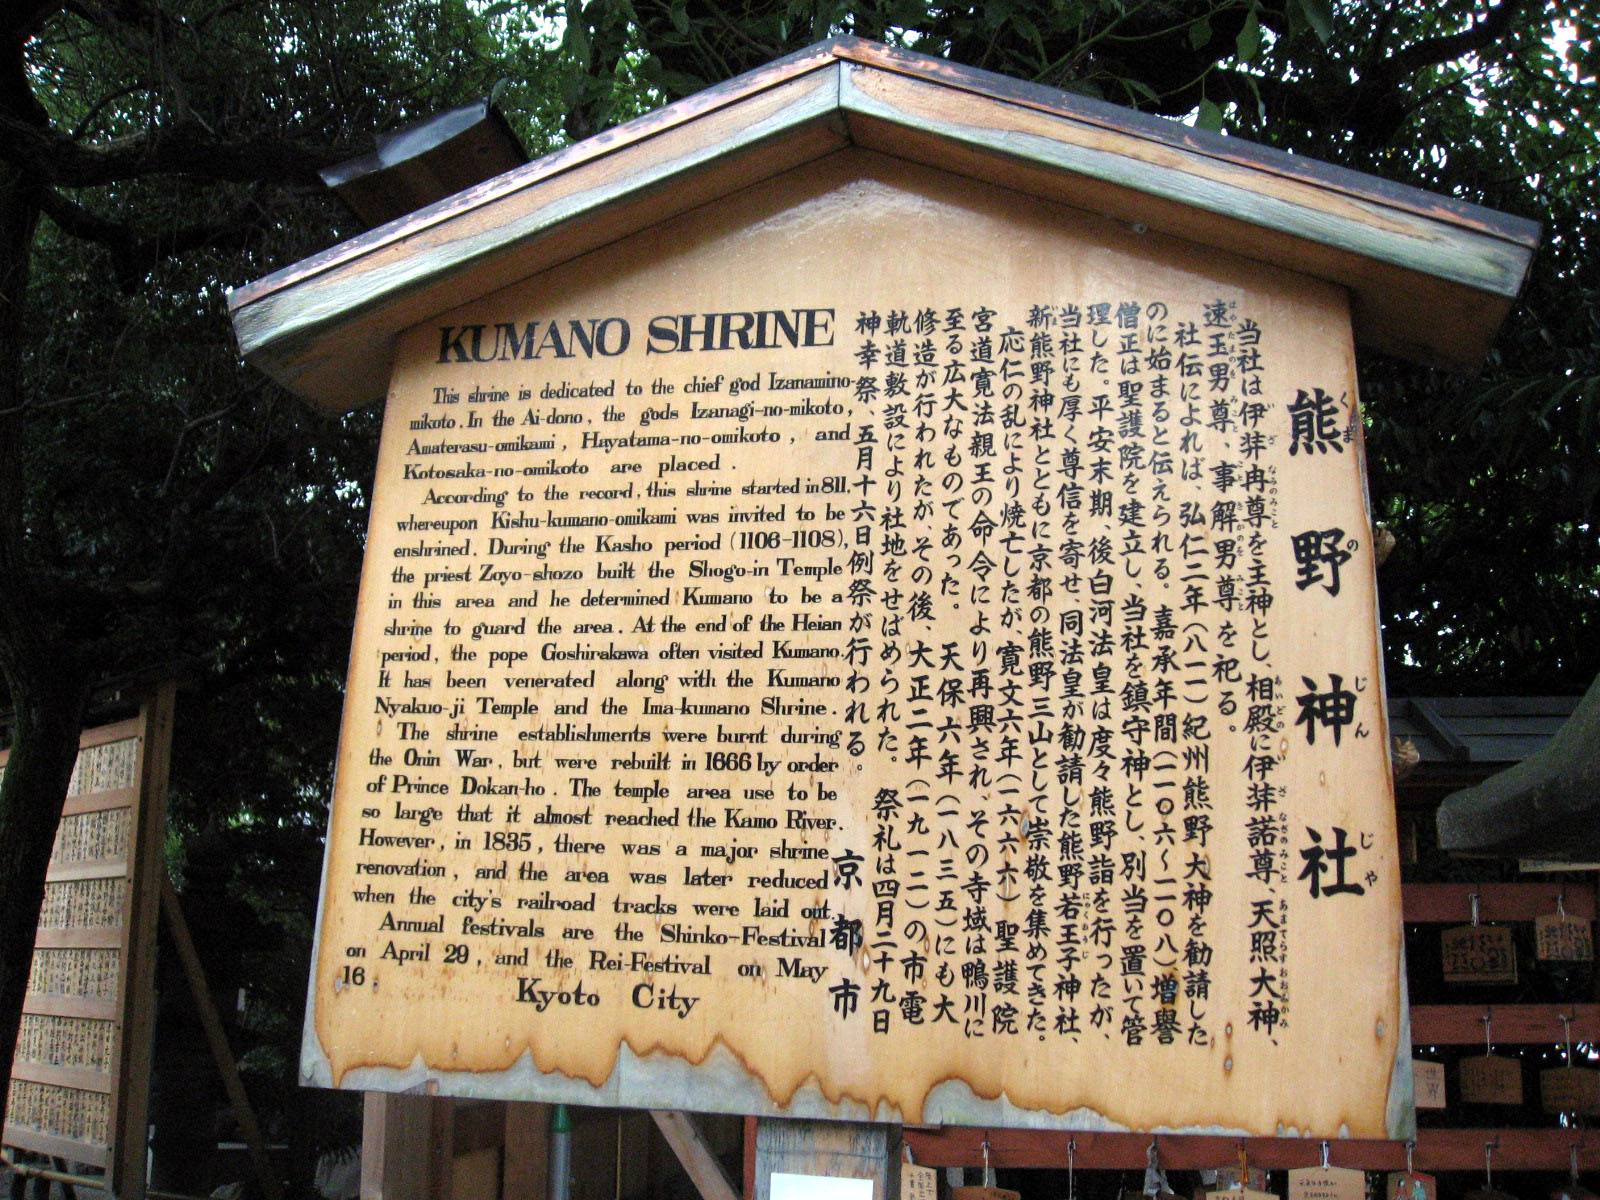 KUMANO SHRINE
This shrine is dedicated to the chief god Izanamino-
mikoto. In the Ai-dono, the gods Izanagi-no-mikoto,
Amaterasu-omikami, Hayatama-no-omikoto, and
Kotosaka-no-omikoto are placed.
According to the record, this shrine started in 811,
whereupon Kishu-kumano-omikami was invited to be
enshrined. During the Kasho period (1106-1108),
the priest Zoyo-shozo built the Shogo-in Temple
in this area and he determined Kumano to be a
shrine to guard the area. At the end of the Heian
period, the pope Goshirakawa often visited Kumano.
It has been venerated along with the Kumano
Nyakuo-ji Temple and the Ima-kumano Shrine.
The shrine establishments were burnt during
the Onin War, but were rebuilt in 1666 by order
of Prince Dokan-ho. The temple area use to be
so large that it almost reached the Kamo River.
However, in 1835, there was a major shrine
renovation, and the area was later reduced
when the city's railroad tracks were laid out.
Annual festivals are the Shinko-Festival
on April 29, and the Rei-Festival on May
16
Kyoto City
熊野神社
くまのじんじゃ
当社は伊弉冉尊を主神とし、相殿に伊弉諾尊、天照大神、
速玉男尊、事解男尊を祀る。
社伝によれば、弘仁二年(八一一)紀州熊野大神を勧請した
のに始まると伝えられる。嘉承年間(一一〇六〜一一〇八)増誉
僧正は聖護院を建立し、当社を鎮守神とし、別当を置いて管
理した。平安末期、後白河法皇は度々熊野詣を行ったが、
当社にも厚く尊信を寄せ、同法皇が勧請した熊野若王子神社、
新熊野神社とともに京都の熊野三山として崇敬を集めてきた。
応仁の乱により焼亡したが、寛文六年(一六六六)聖護院
宮道寛法親王の命令により再興され、その寺域は鴨川に
至る広大なものであった。天保六年(一八三五)にも大
修造が行われたが、その後、大正二年(一九一二)の市電
軌道敷設により社地をせばめられた。祭礼は四月二十九日
神幸祭、五月十六日例祭が行われる。
京都市